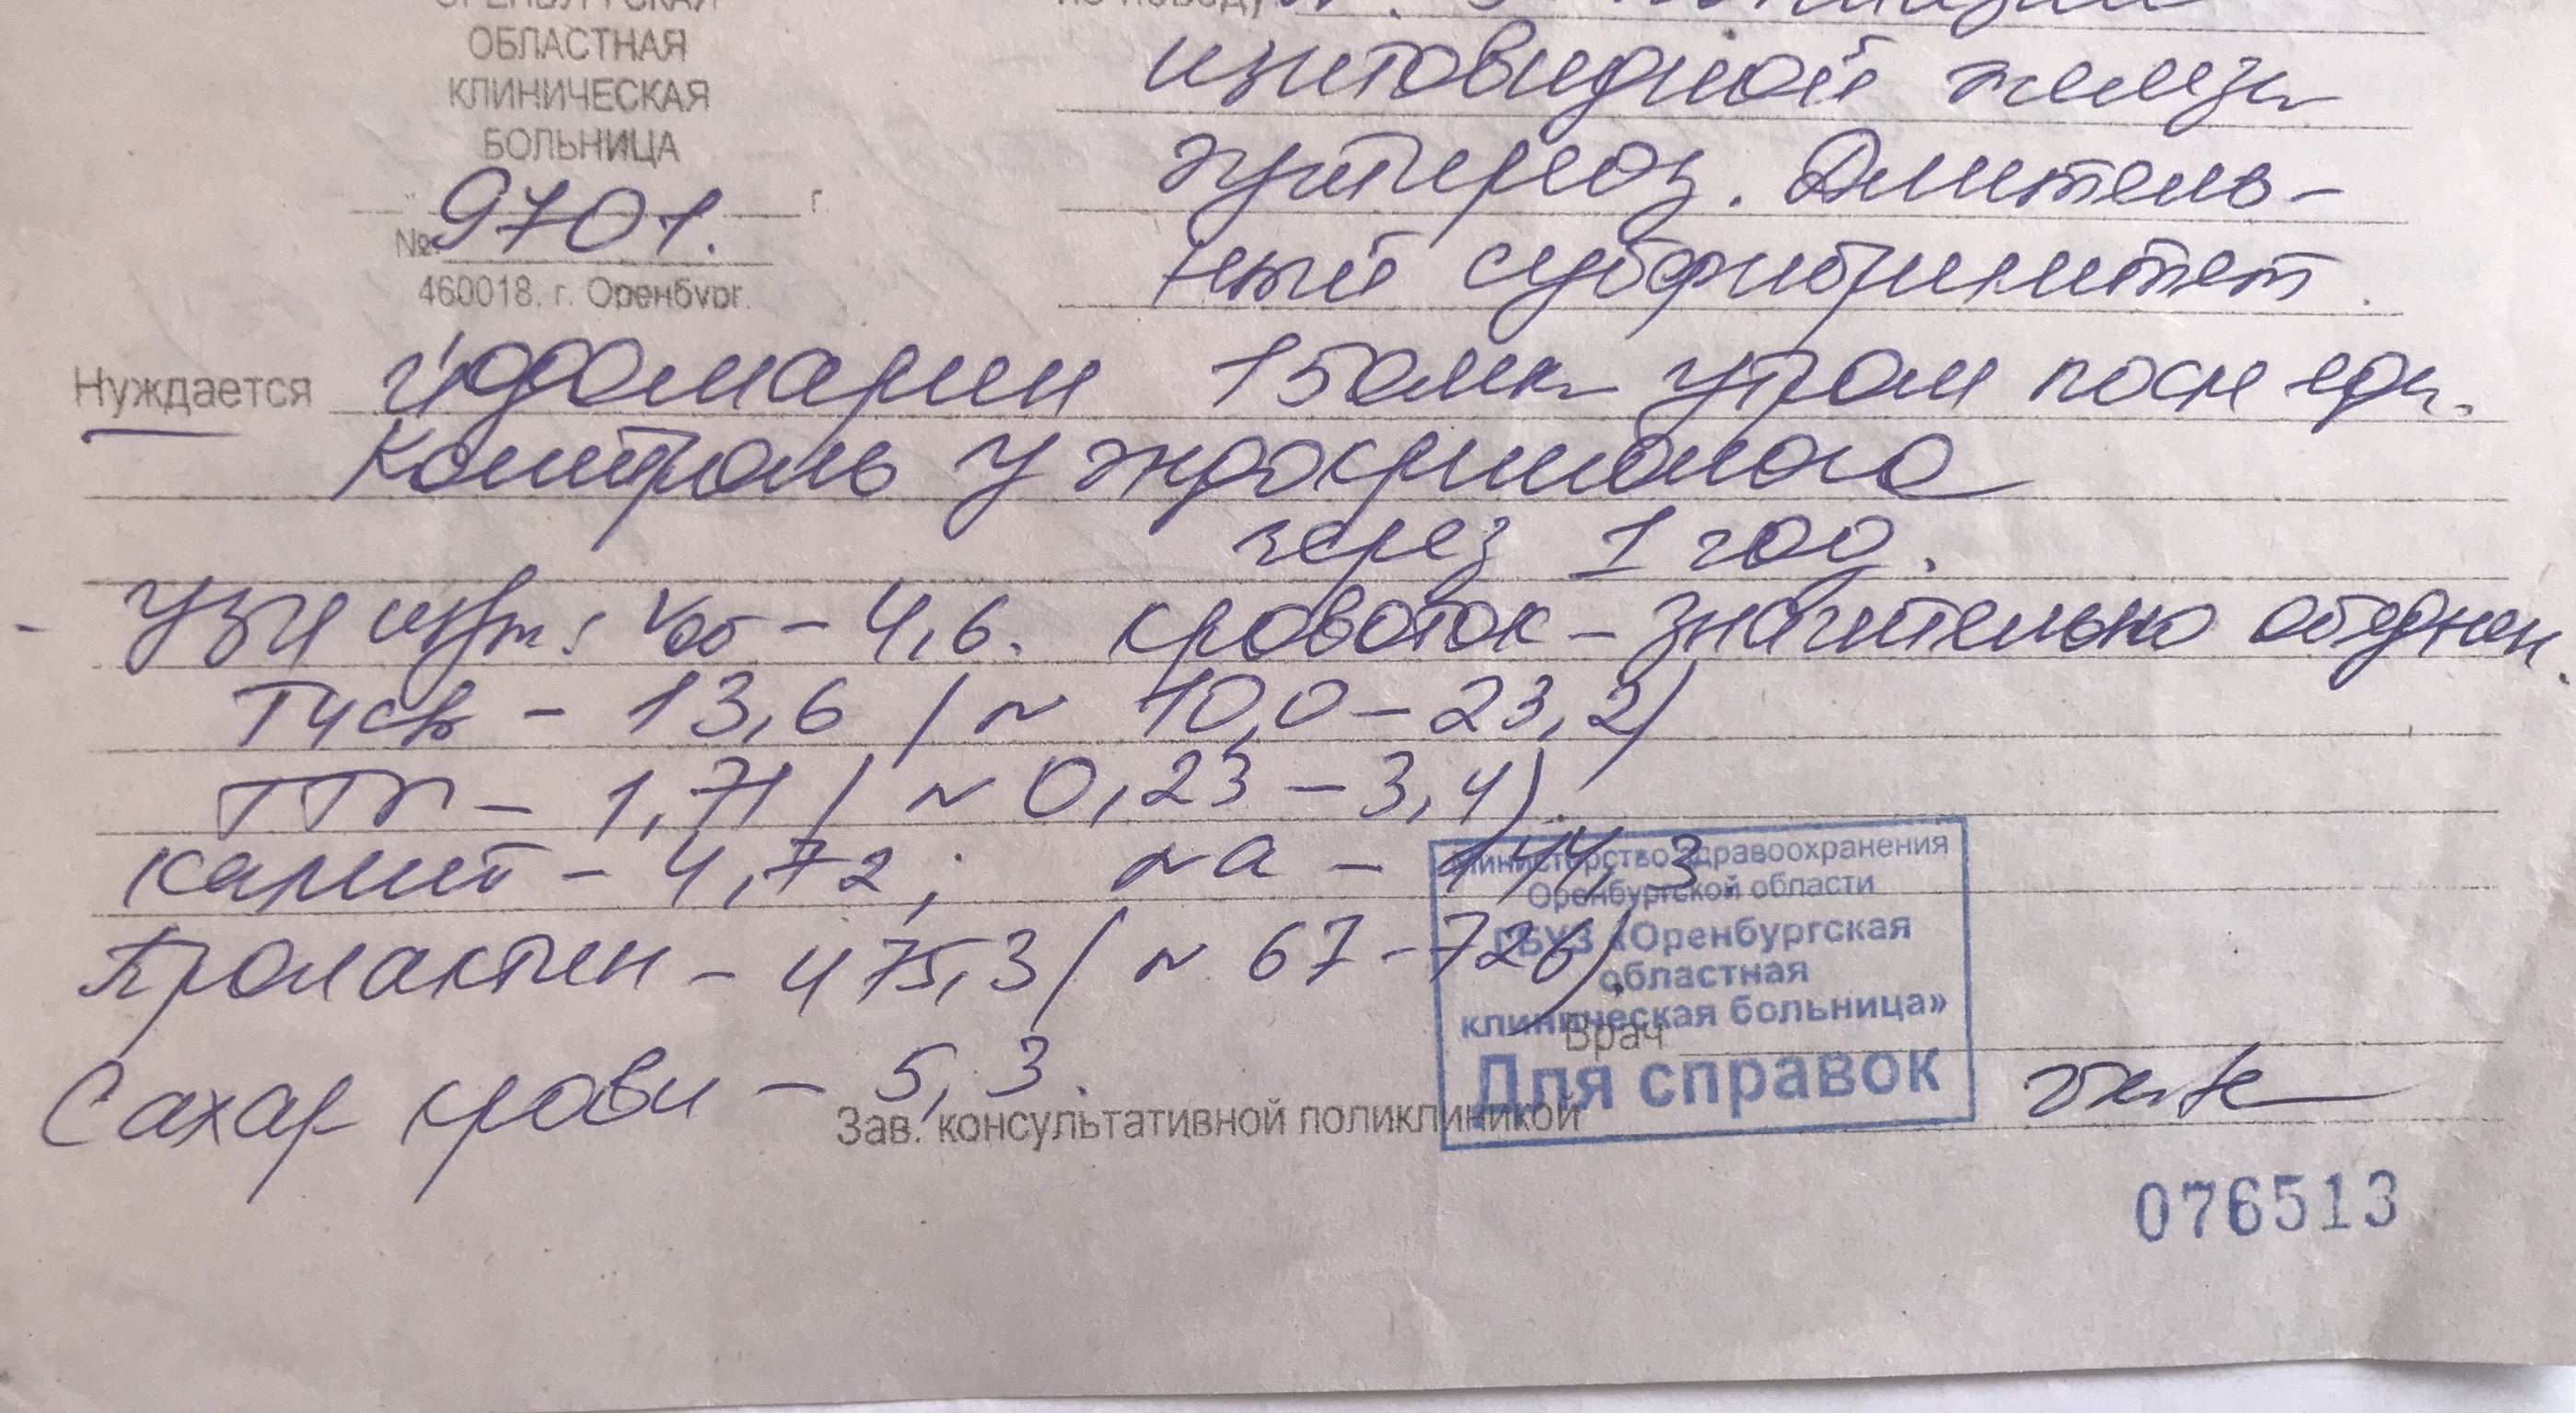 ОРЕНБУРГСКАЯ
ОБЛАСТНАЯ
КЛИНИЧЕСКАЯ
БОЛЬНИЦА
г.
№ 9701.
460018. г. Оренбург.
по поводу
щитовидной железы
эутиреоз. Длитель-
ный субфибрилитет.
Нуждается йодомарин 150мкг утром после еды.
Контроль у эндокринолога
через 1 год.
- УЗИ щит: Vоб - 4,6. кровоток - значительно обеднен.
Т4св - 13,6 (N 10,0 - 23,2)
ТТГ - 1,71 (N 0,23 - 3,4).
калий - 4,72; Na - 144,3
Пролактин - 475,3 (N 67 - 726).
Сахар крови - 5,3.
Министерство здравоохранения
Оренбургской области
ГБУЗ «Оренбургская
областная
клиническая больница»
Для справок
Врач
Зав. консультативной поликлиникой
076513